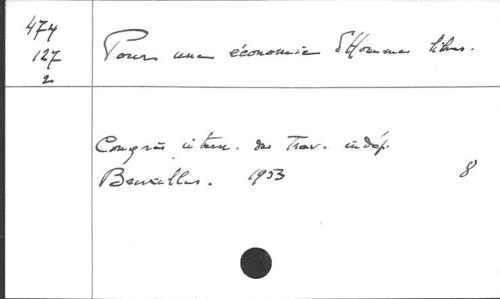 474
127
2
Pour une économie d'Hommes libres.
Congrès intern. des Trav. indép.
Bruxelles. 1953
8